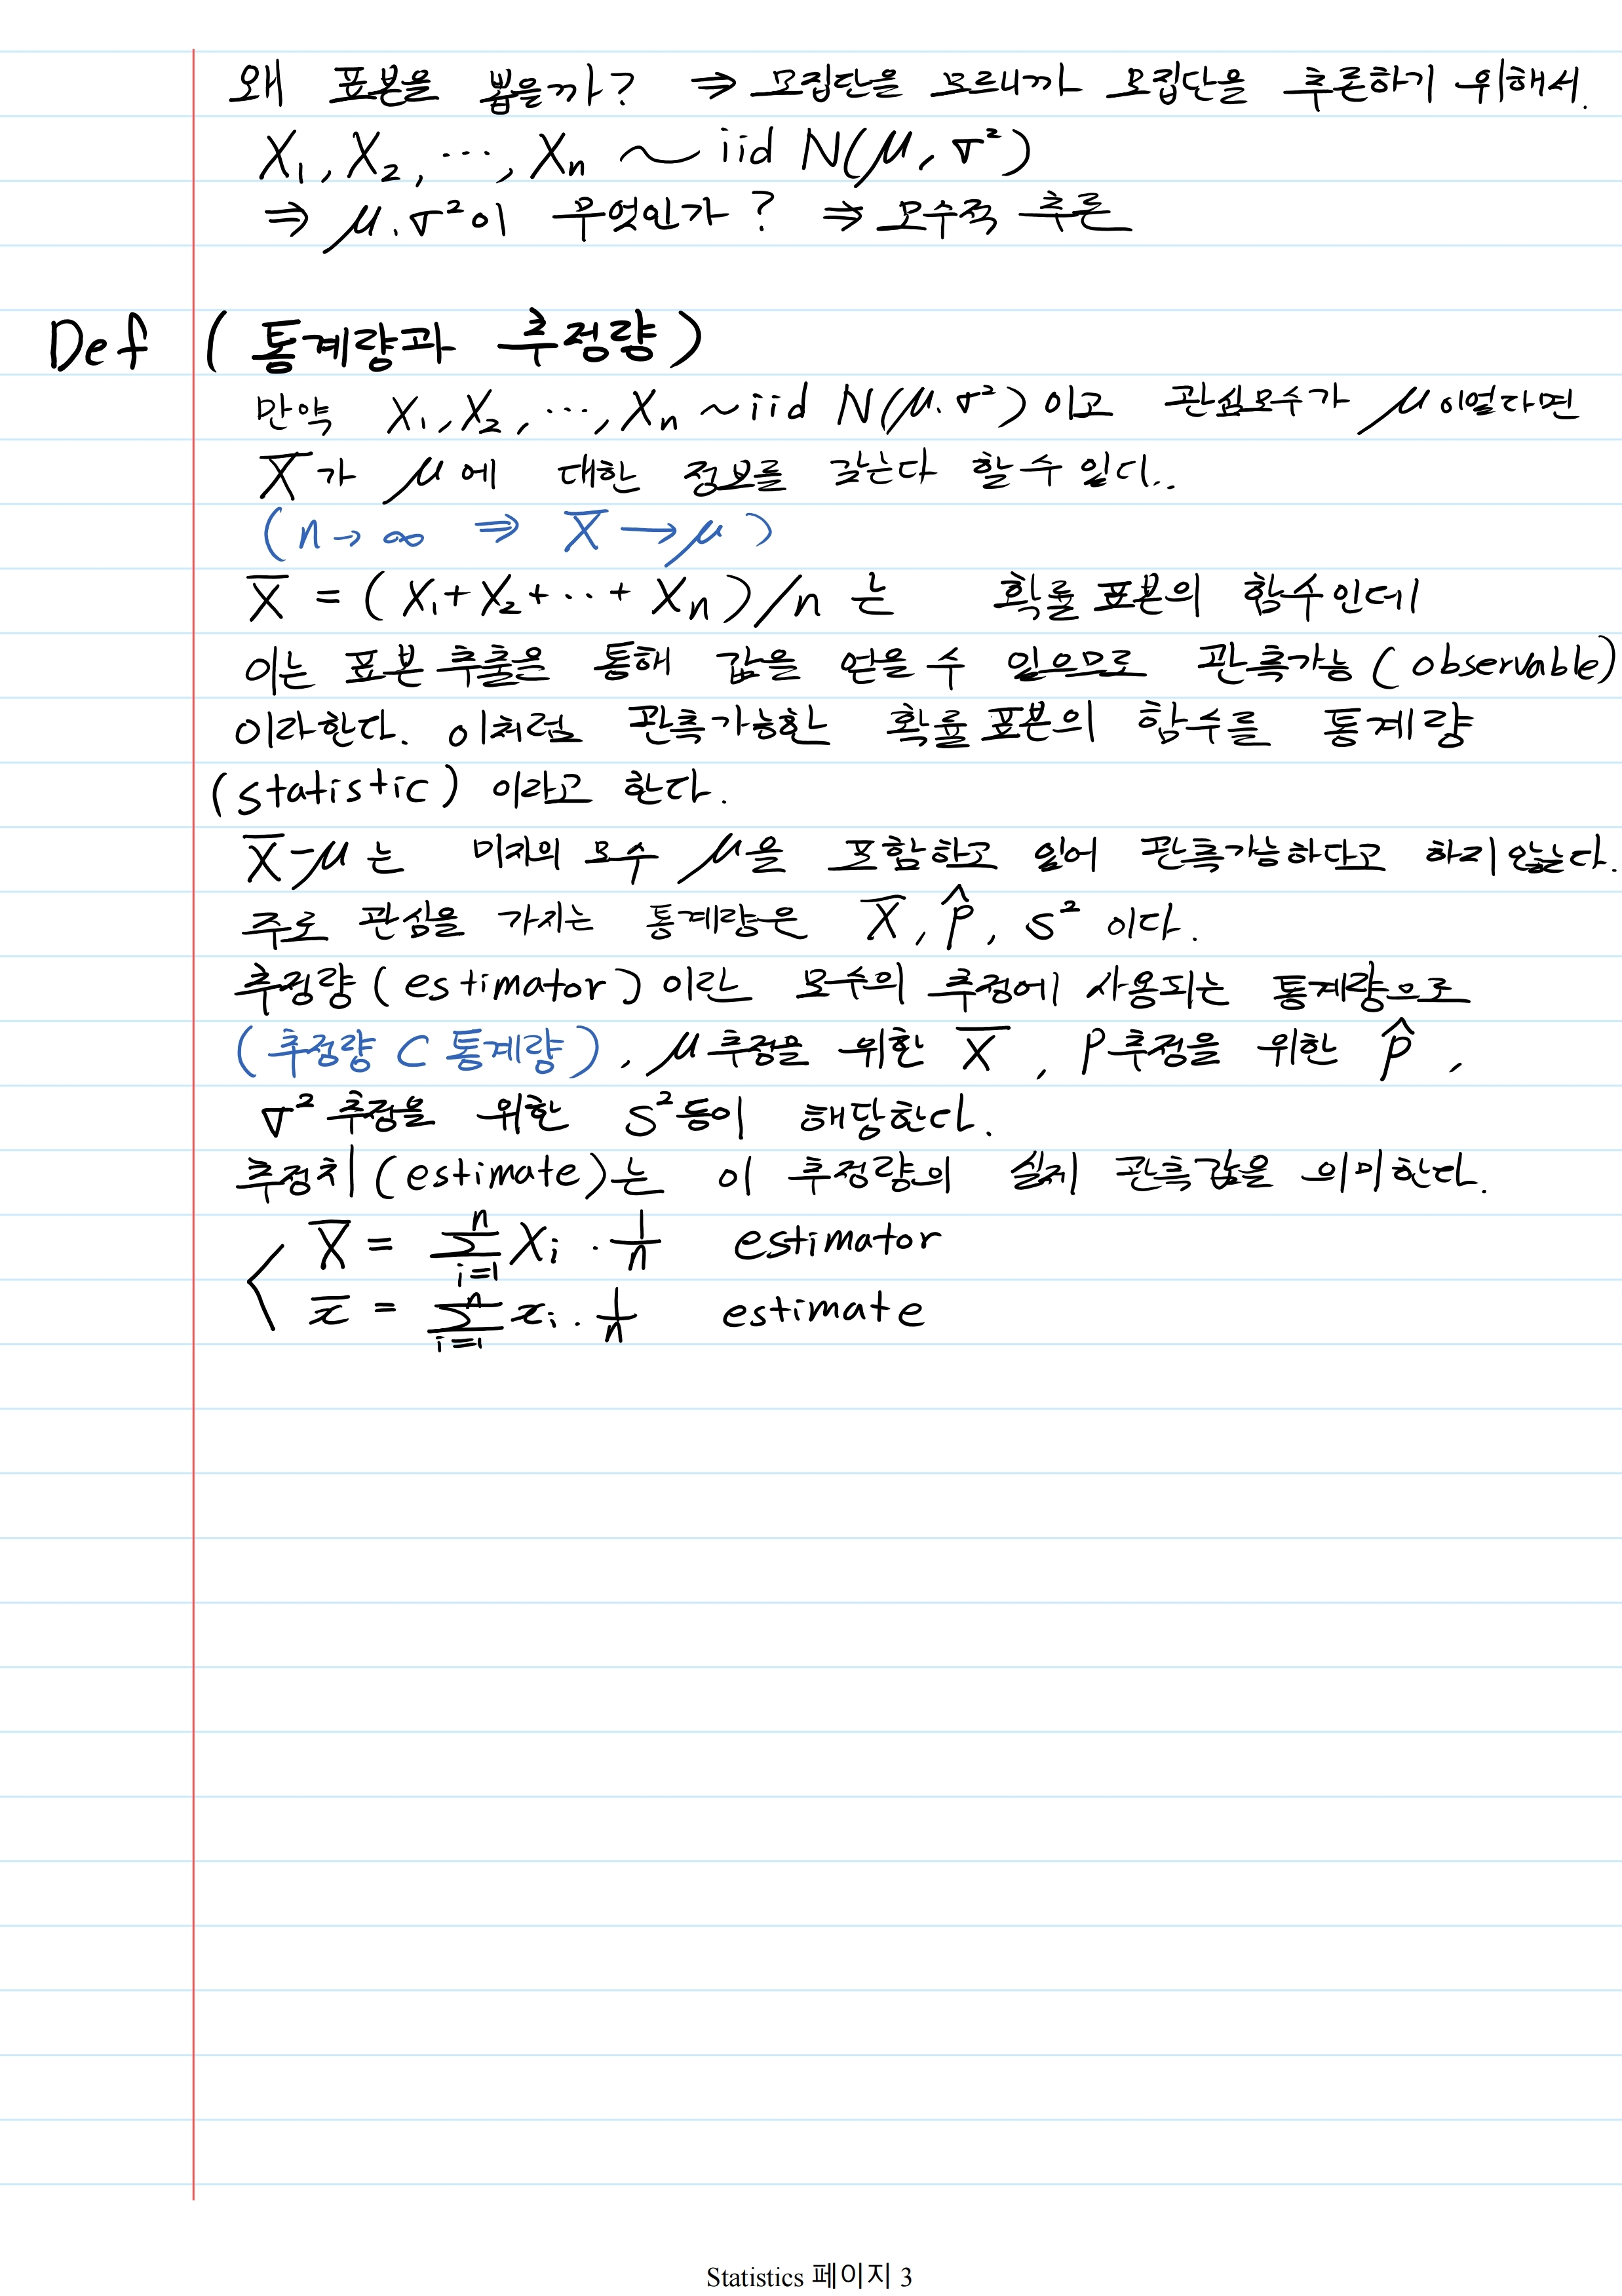 왜 표본을 뽑을까? ⇒ 모집단을 모르니까 모집단을 추론하기 위해서.
X₁, X₂, ⋯, Xₙ ~ iid N(μ, σ²)
⇒ μ, σ²이 무엇인가? ⇒ 모수적 추론
Def (통계량과 추정량)
만약 X₁, X₂, ⋯, Xₙ ~ iid N(μ, σ²) 이고 관심모수가 μ이었다면
X̅가 μ에 대한 정보를 갖는다 할 수 있다..
(n → ∞ ⇒ X̅ → μ)
X̅ = (X₁ + X₂ + ⋯ + Xₙ)/n 는 확률표본의 함수인데
이는 표본추출을 통해 값을 얻을 수 있으므로 관측가능 (observable)
이라한다. 이처럼 관측가능한 확률표본의 함수를 통계량
(statistic) 이라고 한다.
X̅-μ는 미지의 모수 μ을 포함하고 있어 관측가능하다고 하지 않는다.
주로 관심을 가지는 통계량은 X̅, p̂, S² 이다.
추정량(estimator)이란 모수의 추정에 사용되는 통계량으로
(추정량 ⊂ 통계량), μ추정을 위한 X̅, p추정을 위한 p̂,
σ²추정을 위한 S²등이 해당한다.
추정치(estimate)는 이 추정량의 실제 관측값을 의미한다.
X̅ = ∑ⁿᵢ₌₁ Xᵢ · 1/n estimator
x̅ = ∑ⁿᵢ₌₁ xᵢ · 1/n estimate
Statistics 페이지 3